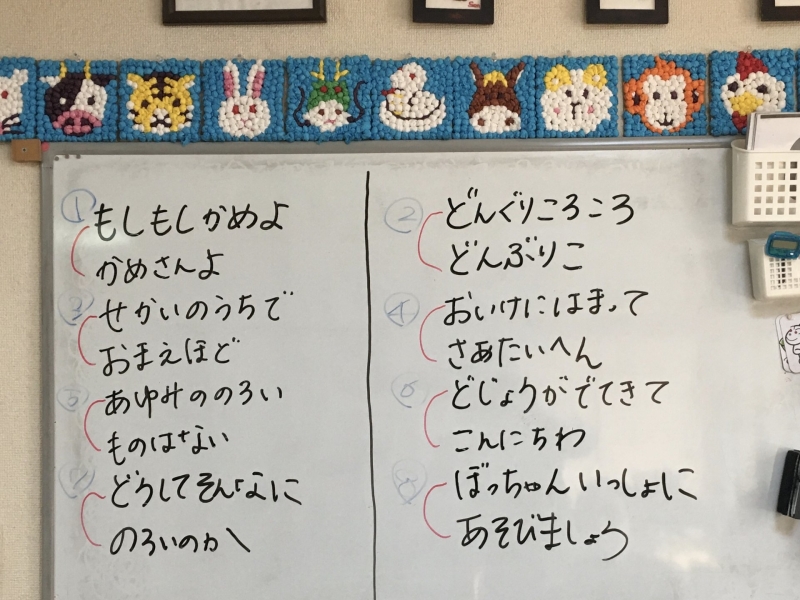 ① もしもしかめよ
かめさんよ
③ せかいのうちで
おまえほど
⑤ あゆみののろい
ものはない
⑦ どうしてそんなに
のろいのか
② どんぐりころころ
どんぶりこ
④ おいけにはまって
さあたいへん
⑥ どじょうがでてきて
こんにちわ
⑧ ぼっちゃんいっしょに
あそびましょう